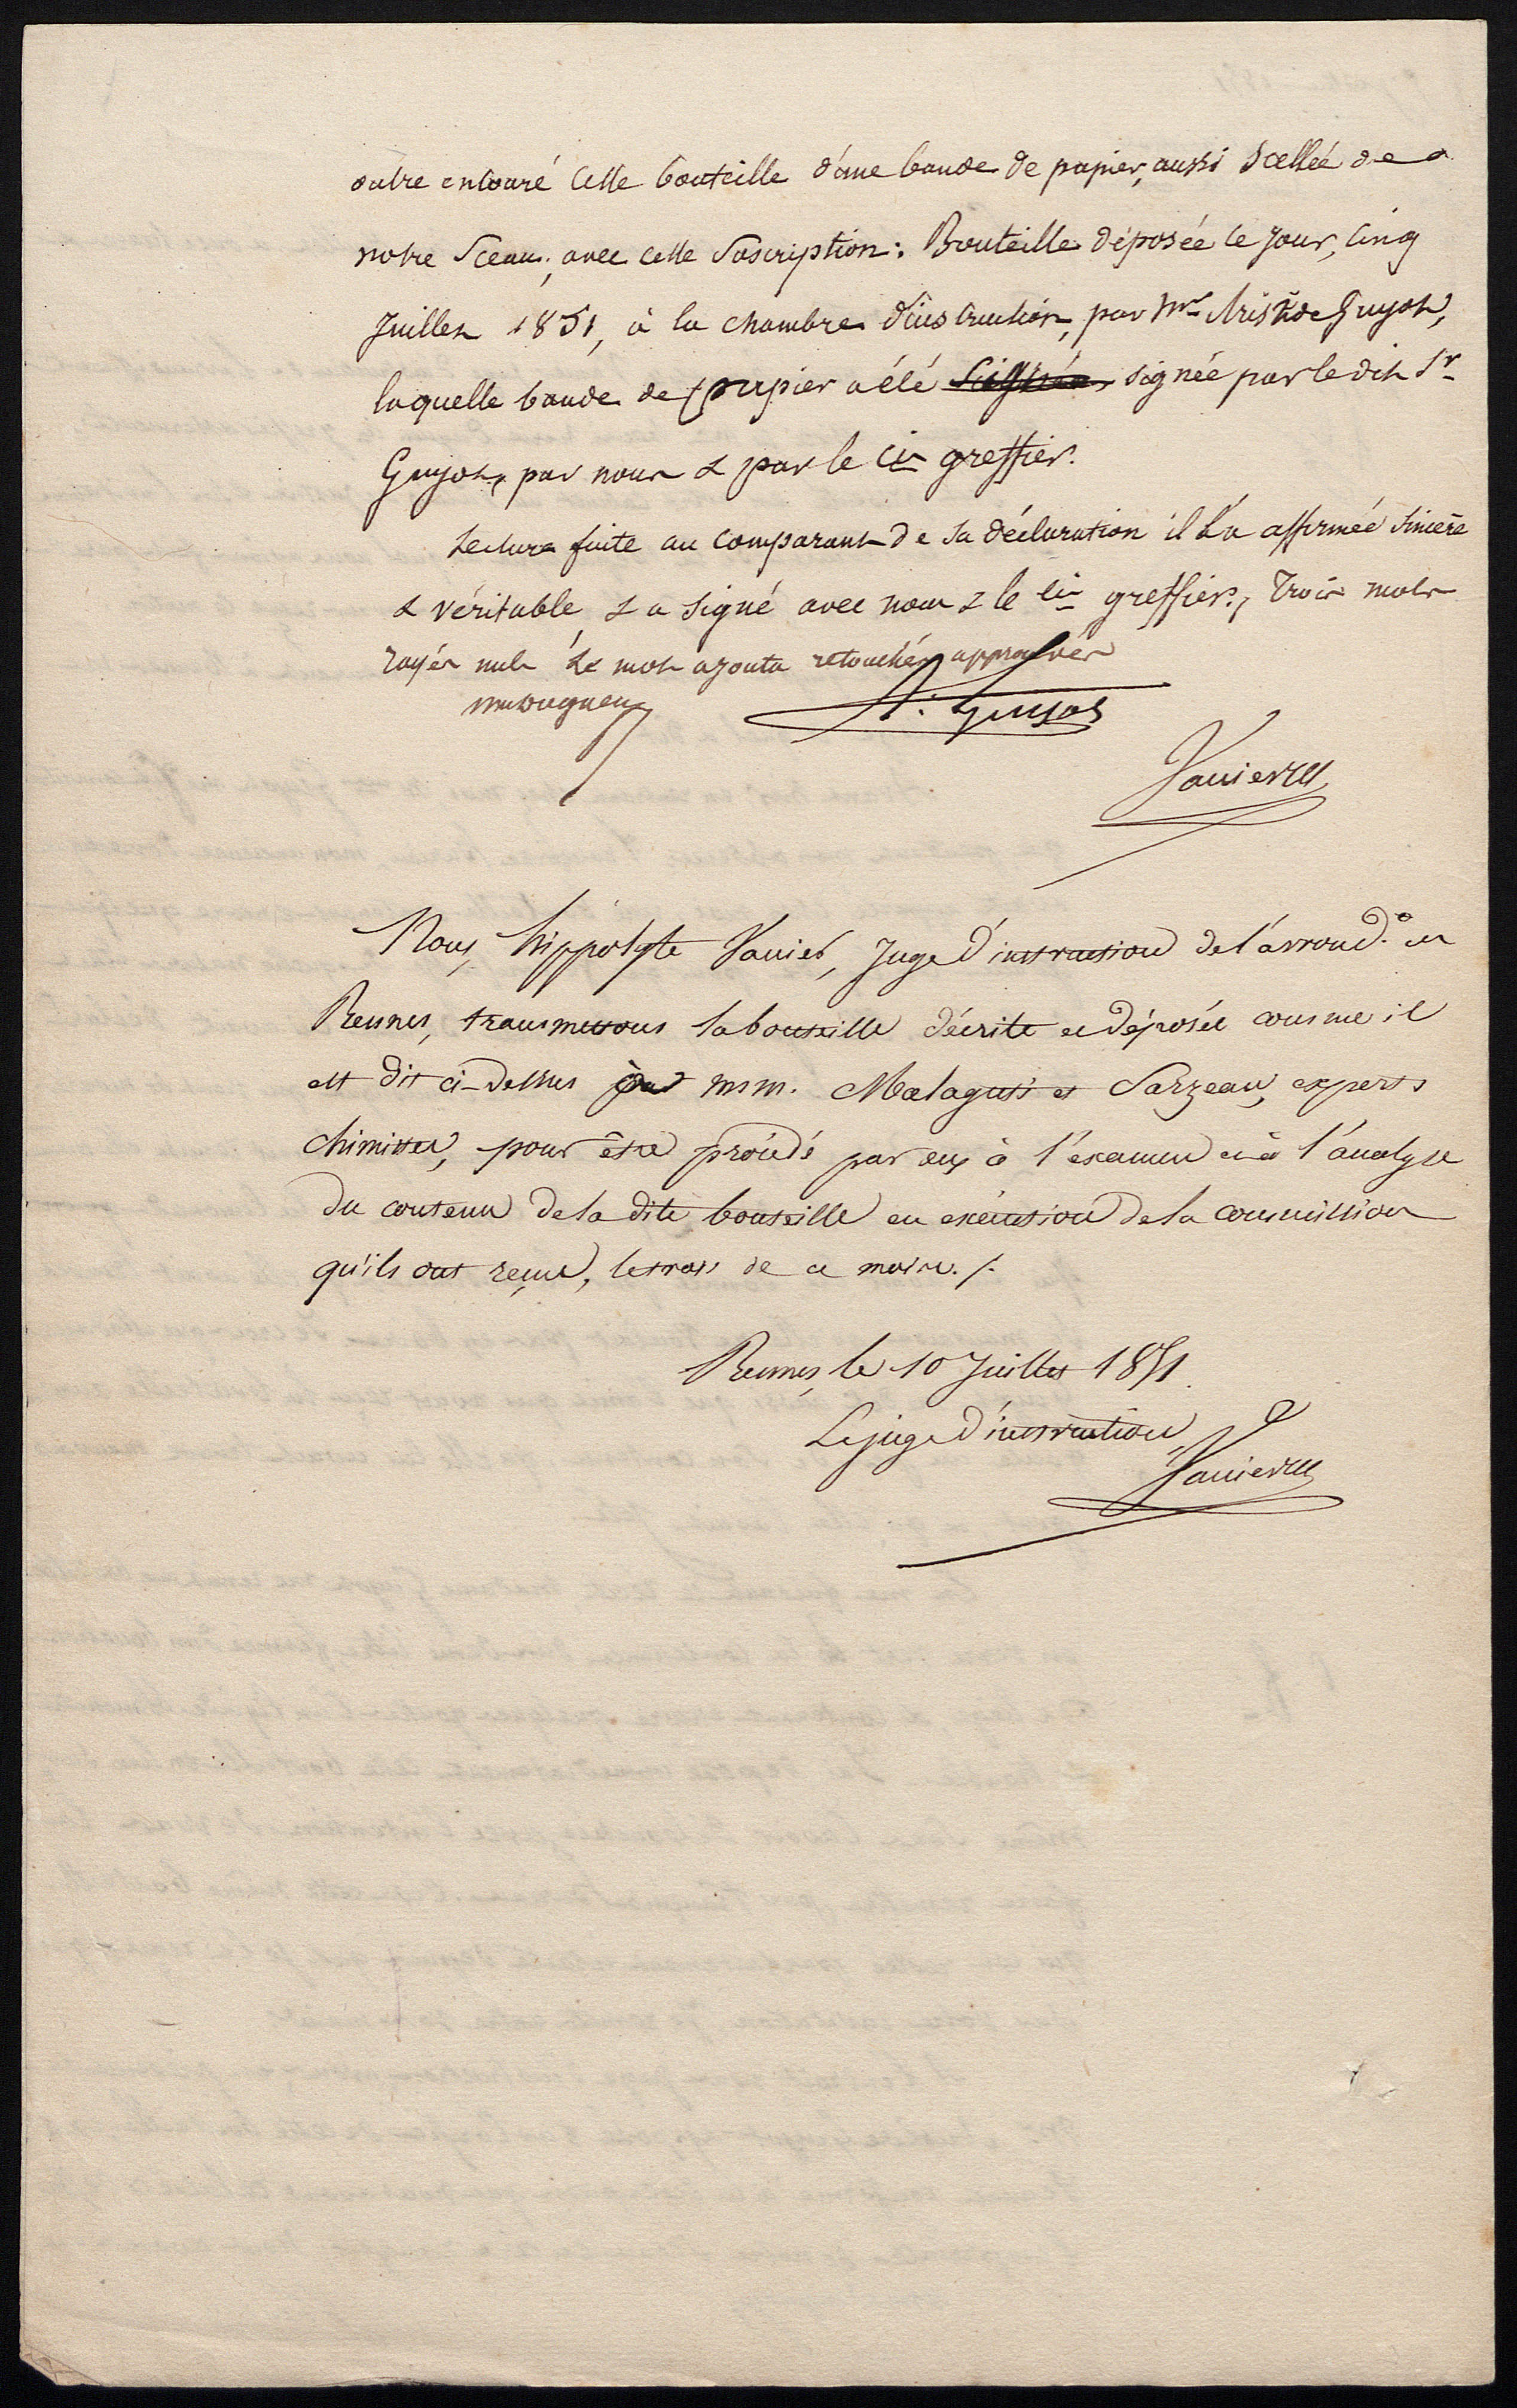 outre entouré cette bouteille d'une bande de papier, aussi scellée de
notre sceau, avec cette suscription : Bouteille déposée ce jour, cinq
Juillet 1851, à la chambre d'instruction, par Mr Aristide Guyot,
laquelle bande de papier a été signée par le dit Sr
Guyot, par nous & par le cis greffier.
Lecture faite au comparant de sa déclaration il l'a affirmée sincère
& véritable & a signé avec nous & le cis greffier, trois mots
rayés nuls & le mot ajouta retouchés approuvés
A. Guyot
Vannier
Nous, hippolyte Vannier, Juge d'instruction de l'arrond. de
Rennes, transmettons la bouteille décrite et déposée comme il
est dit ci-dessus à mm. Malaguti et Sarzeau, experts
chimistes, pour être procédé par eux à l'examen et à l'analyse
du contenu de la dite bouteille en exécution de la commission
qu'ils ont reçue, le trois de ce mois. /.
Rennes, le 10 Juillet 1851.
Le juge d'instruction,
Vannier